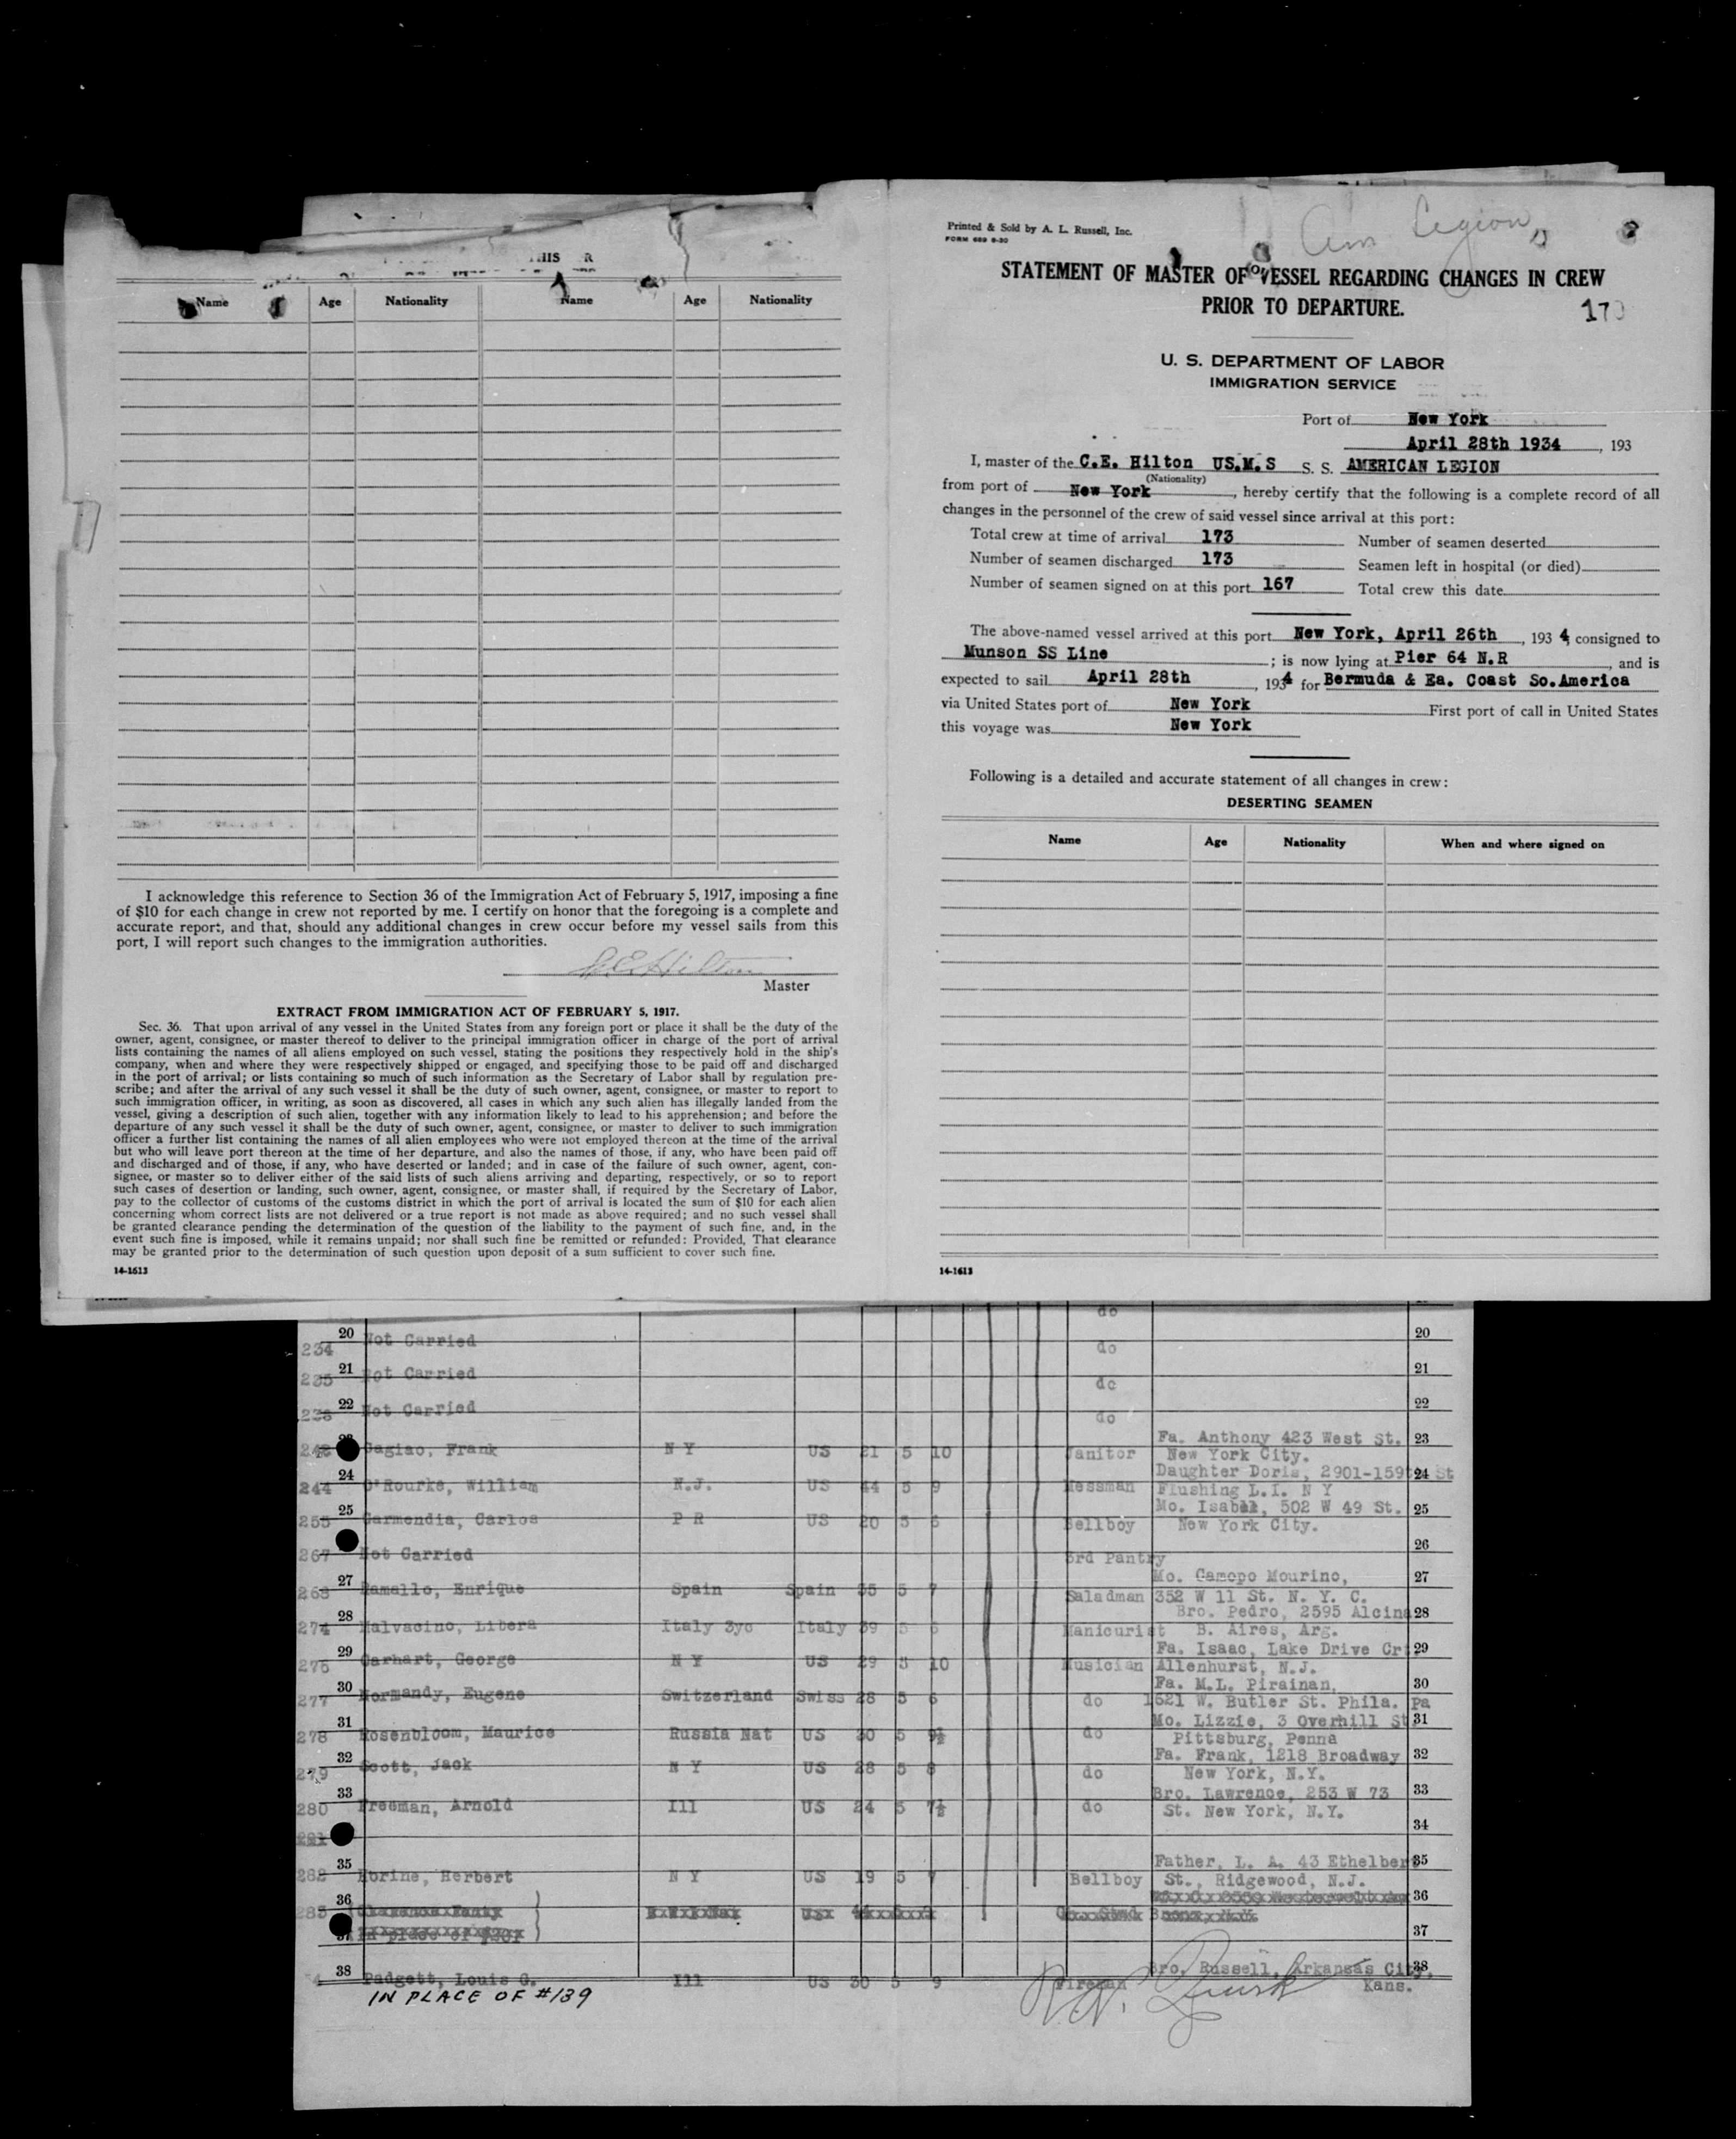 Name Age Nationality Name Age Nationality
I acknowledge this reference to Section 36 of the Immigration Act of February 5, 1917, imposing a fine
of $10 for each change in crew not reported by me. I certify on honor that the foregoing is a complete and
accurate report, and that, should any additional changes in crew occur before my vessel sails from this
port, I will report such changes to the immigration authorities.
C.E. Hilton
Master
EXTRACT FROM IMMIGRATION ACT OF FEBRUARY 5, 1917.
Sec. 36. That upon arrival of any vessel in the United States from any foreign port or place it shall be the duty of the
owner, agent, consignee, or master thereof to deliver to the principal immigration officer in charge of the port of arrival
lists containing the names of all aliens employed on such vessel, stating the positions they respectively hold in the ship's
company, when and where they were respectively shipped or engaged, and specifying those to be paid off and discharged
in the port of arrival; or lists containing so much of such information as the Secretary of Labor shall by regulation pre-
scribe; and after the arrival of any such vessel it shall be the duty of such owner, agent, consignee, or master to report to
such immigration officer, in writing, as soon as discovered, all cases in which any such alien has illegally landed from the
vessel, giving a description of such alien, together with any information likely to lead to his apprehension; and before the
departure of any such vessel it shall be the duty of such owner, agent, consignee, or master to deliver to such immigration
officer a further list containing the names of all alien employees who were not employed thereon at the time of the arrival
but who will leave port thereon at the time of her departure, and also the names of those, if any, who have been paid off
and discharged and of those, if any, who have deserted or landed; and in case of the failure of such owner, agent, con-
signee, or master so to deliver either of the said lists of such aliens arriving and departing, respectively, or so to report
such cases of desertion or landing, such owner, agent, consignee, or master shall, if required by the Secretary of Labor,
pay to the collector of customs of the customs district in which the port of arrival is located the sum of $10 for each alien
concerning whom correct lists are not delivered or a true report is not made as above required; and no such vessel shall
be granted clearance pending the determination of the question of the liability to the payment of such fine, and, in the
event such fine is imposed, while it remains unpaid; nor shall such fine be remitted or refunded: Provided, That clearance
may be granted prior to the determination of such question upon deposit of a sum sufficient to cover such fine.
14-1613
Am Legion
Printed & Sold by A. L. Russell, Inc.
FORM 689 8-30
STATEMENT OF MASTER OF VESSEL REGARDING CHANGES IN CREW
PRIOR TO DEPARTURE.
U. S. DEPARTMENT OF LABOR
IMMIGRATION SERVICE
Port of New York
April 28th 1934, 193
I, master of the C.E. Hilton US.M.S S. S. AMERICAN LEGION
(Nationality)
from port of New York, hereby certify that the following is a complete record of all
changes in the personnel of the crew of said vessel since arrival at this port:
Total crew at time of arrival 173 Number of seamen deserted
Number of seamen discharged 173 Seamen left in hospital (or died)
Number of seamen signed on at this port 167 Total crew this date
The above-named vessel arrived at this port New York, April 26th, 1934, consigned to
Munson SS Line; is now lying at Pier 64 N.R, and is
expected to sail April 28th, 1934 for Bermuda & Ea. Coast So.America
via United States port of New York First port of call in United States
this voyage was New York
Following is a detailed and accurate statement of all changes in crew:
DESERTING SEAMEN
Name Age Nationality When and where signed on
14-1613
do
234 20 Not Carried do 20
235 21 Not Carried do 21
22 Not Carried do 22
Fa. Anthony 423 West St. 23
Gagiao, Frank N Y US 21 5 10 Janitor New York City.
Daughter Doris, 2901-159th St 24
244 24 O'Rourke, William N.J. US 44 5 9 Messman Flushing L.I. N Y
Mo. Isabel, 502 W 49 St. 25
255 25 Garmendia, Carlos P R US 20 5 6 Bellboy New York City.
267 Not Carried 3rd Pantry 26
Mo. Camopo Mourino, 27
268 27 Ramallo, Enrique Spain Spain 35 5 7 Saladman 352 W 11 St. N. Y. C.
Bro. Pedro, 2595 Alcina 28
274 28 Malvacino, Libera Italy 3yc Italy 39 5 6 Manicurist B. Aires, Arg.
Fa. Isaac, Lake Drive Crt 29
275 29 Carhart, George N Y US 29 5 10 Musician Allenhurst, N.J.
Fa. M.L. Pirainan, 30
277 30 Normandy, Eugene Switzerland Swiss 28 5 6 do 1621 W. Butler St. Phila. Pa
Mo. Lizzie, 3 Overhill St 31
278 31 Rosenbloom, Maurice Russia Nat US 30 5 9½ do Pittsburg, Penna
Fa. Frank, 1218 Broadway 32
279 32 Scott, Jack N Y US 28 5 8 do New York, N.Y.
Bro. Lawrence, 253 W 73 33
280 33 Freeman, Arnold Ill US 24 5 7½ do St. New York, N.Y.
281 34
Father, L. A. 43 Ethelbert 35
282 35 Morine, Herbert N Y US 19 5 7 Bellboy St., Ridgewood, N.J.
285 36 36
37 in place of 37
Bro. Russell, Arkansas City, 38
38 Padgett, Louis G. Ill US 30 5 9 Fireman Kans.
IN PLACE OF #139